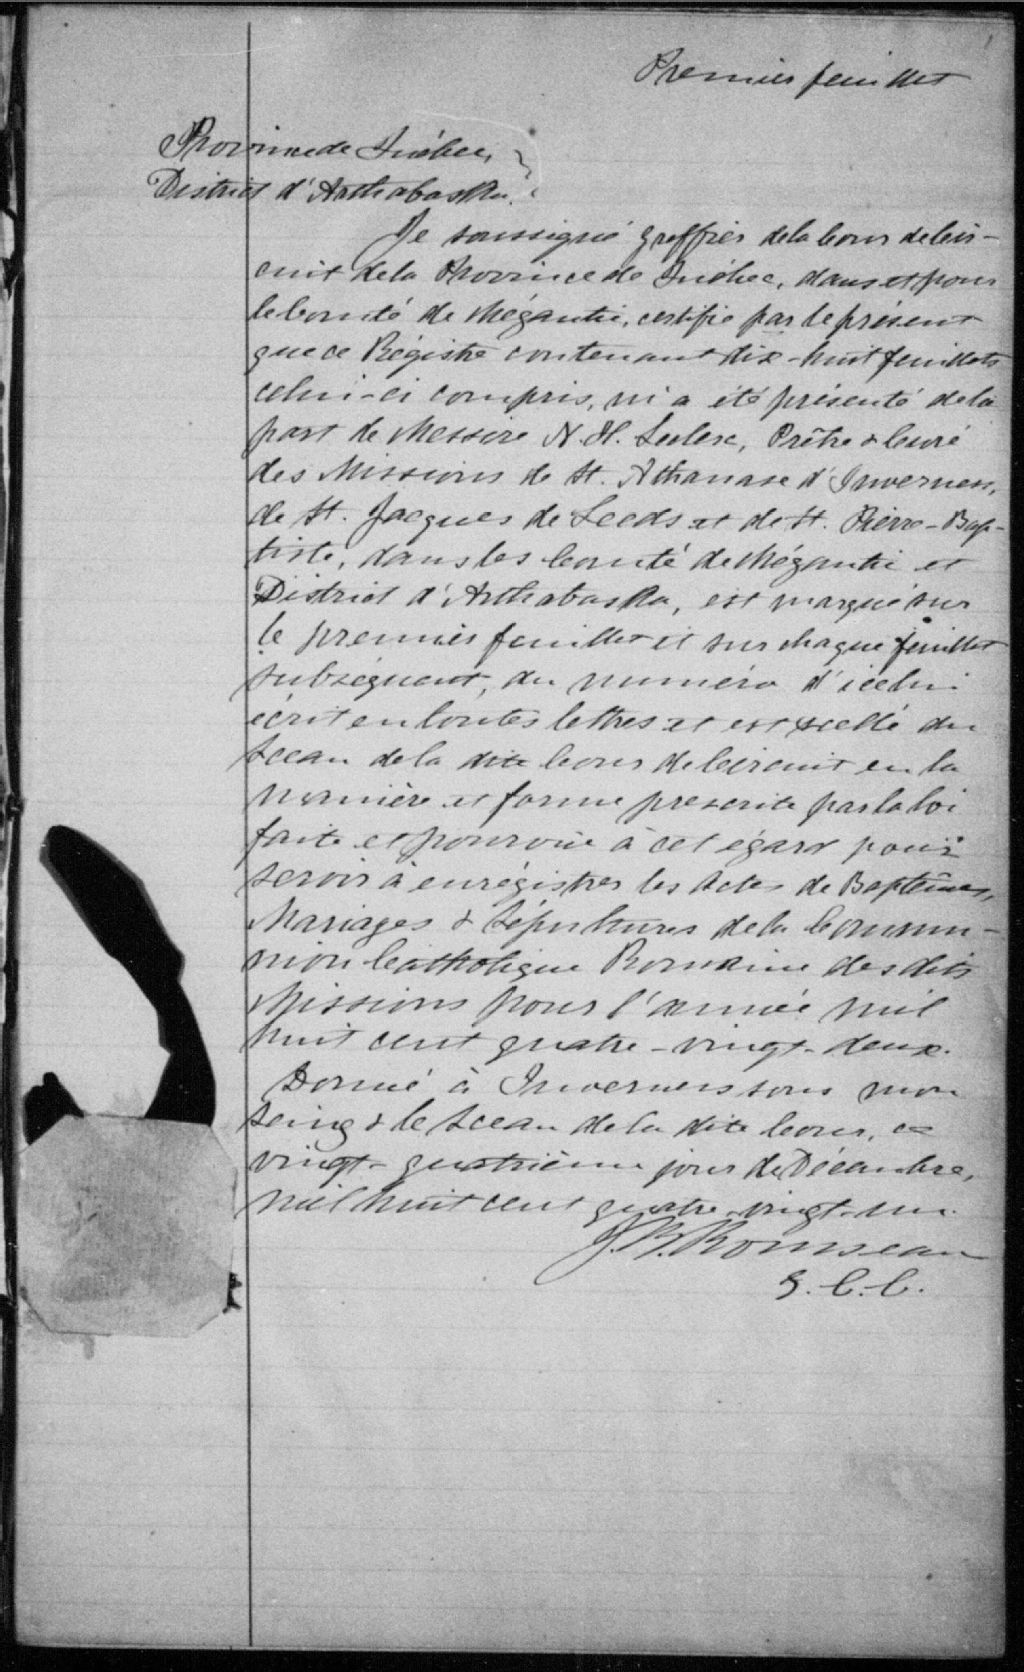 Premier feuillet
Province de Québec,
District d'Arthabaska.
Je soussigné greffier de la Cour de Cir-
cuit de la Province de Québec, dans et pour
le Comté de Mégantic, certifie par le présent
que ce Régistre contenant dix-huit feuillets
celui-ci compris, m'a été présenté de la
part de Messire N. H. Leclerc, Prêtre & Curé
des Missions de St. Athanase d'Inverness,
de St. Jacques de Leeds et de St. Pierre-Bap-
tiste, dans les Comté de Mégantic et
District d'Arthabaska, est marqué sur
le premier feuillet et sur chaque feuillet
subséquent, du numéro d'icelui
écrit en toutes lettres et est scellé du
Sceau de la dite Cour de Circuit en la
manière et forme prescrite par la loi
faite et pourvue à cet égard pour
servir à enrégistrer les Actes de Baptêmes,
Mariages & Sépultures de la Commu-
nion Catholique Romaine des dits
Missions pour l'année mil
huit cent quatre-vingt-deux.
Donné à Inverness sous mon
seing & le Sceau de la dite Cour, ce
vingt-quatrième jour de Décembre,
mil huit cent quatre-vingt-un.
J. B. Rousseau
G. C. C.